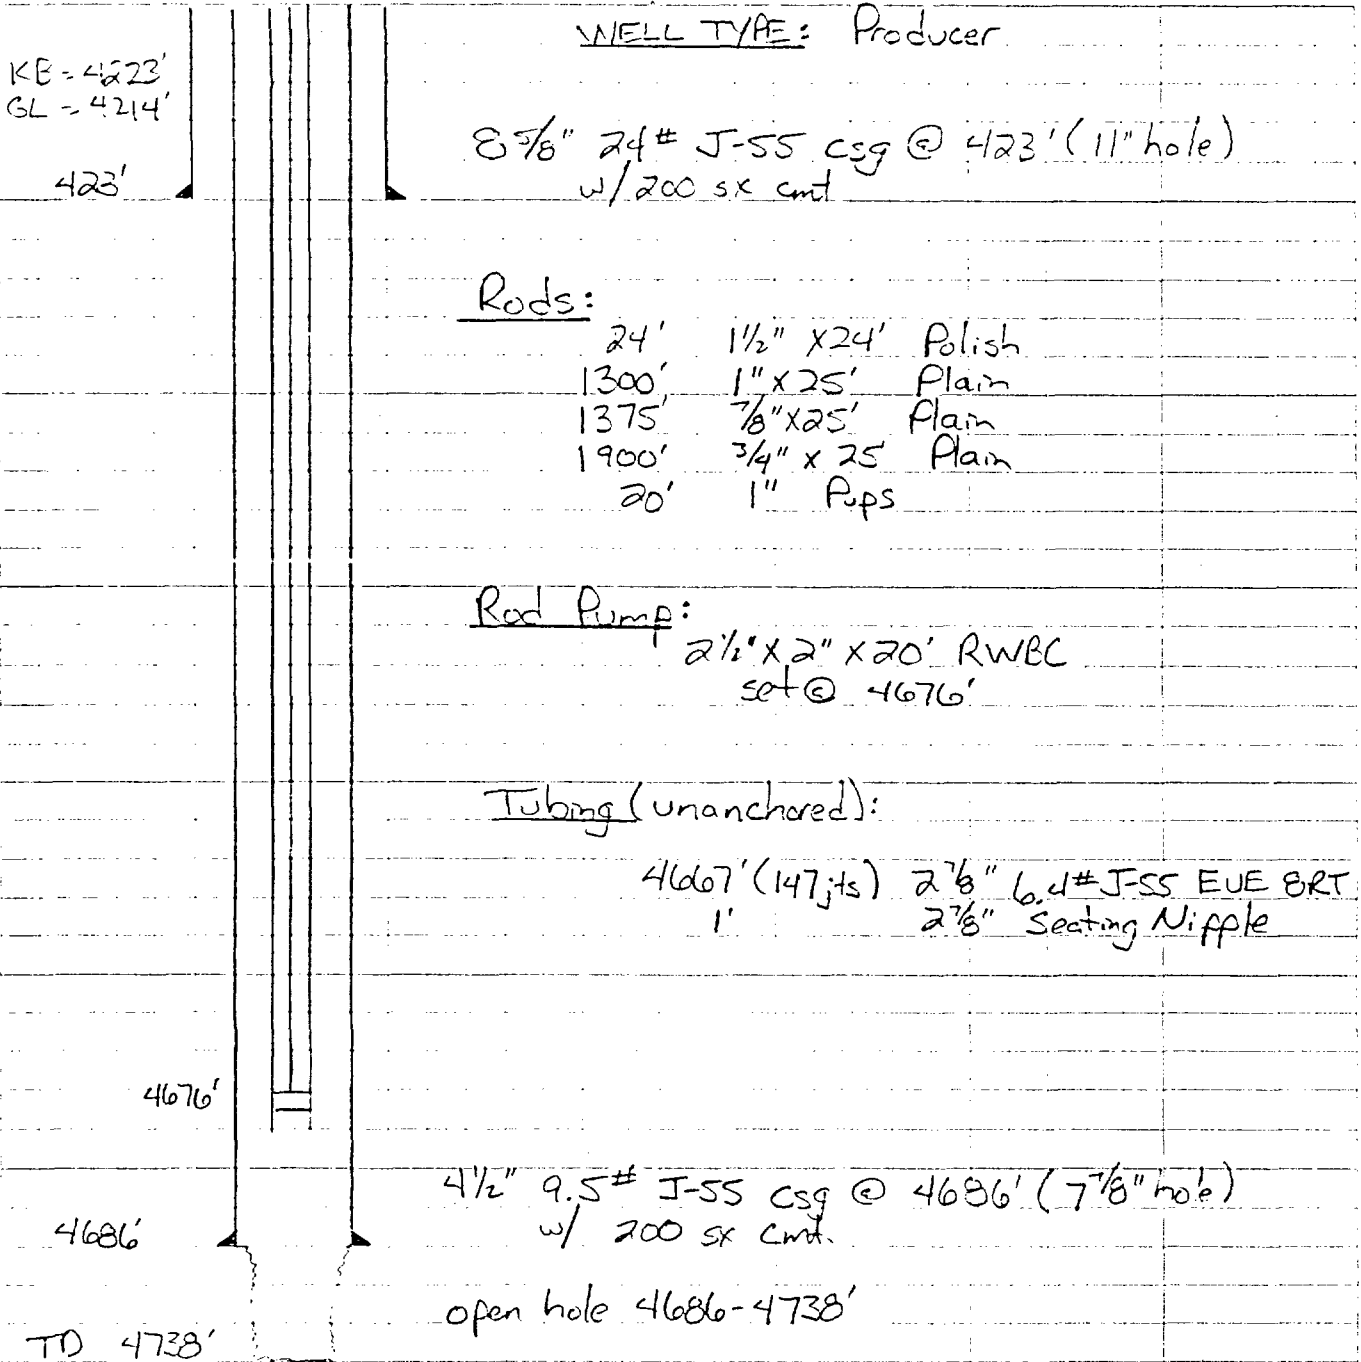 WELL TYPE: Producer
KB = 4223'
GL = 4214'
8 5/8" 24# J-55 csg @ 423' (11" hole)
w/ 200 sx cmt
423'
Rods:
24' 1 1/2" x 24' Polish
1300' 1" x 25' Plain
1375' 7/8" x 25' Plain
1900' 3/4" x 25' Plain
20' 1" Pups
Rod Pump:
2 1/2" x 2" x 20' RWBC
set @ 4676'
Tubing (unanchored):
4667' (147 jts) 2 7/8" 6.4# J-55 EUE 8RT
1' 2 7/8" Seating Nipple
4676'
4 1/2" 9.5# J-55 csg @ 4686' (7 7/8" hole)
w/ 200 sx cmt.
4686'
open hole 4686-4738'
TD 4738'